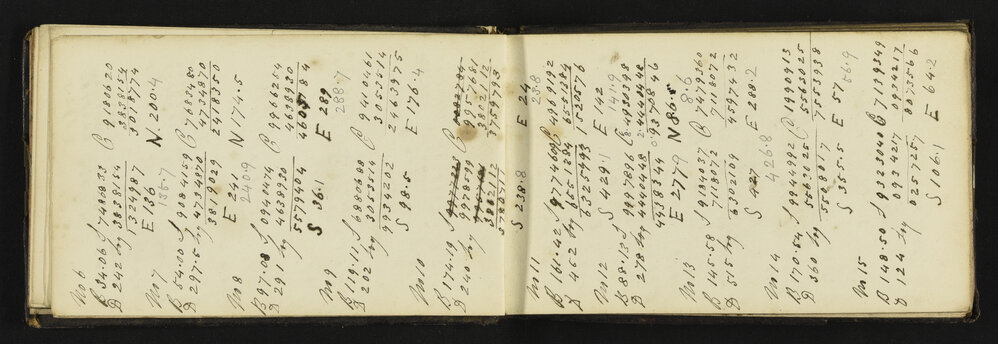 No 6
B 34.06 S 7480833 C 9180620
D 242 log 3838154 3838154
3018774
E 136 N. 200.4
135.7
No 7
B 54.00 S 9084159 C 7683480
D 297.5 log 4734870 4734870
3819029 2418350
E 241 N 174.5
240.9
No 8
B 87.08 S C 9966254
D 291 log 4638930 4638930
5579404 4605184
S 36.1 E 289
288.7
No 9
B 119.11 S 6880688 C 9410461
D 202 log 3053514 3053514
9934202 2463975
S 98.5 E 176.4
No 10
B 174.19 S 9978599 C 9957681
D 240 log 3802112 3802112
5780711 3759793
S 238.8 E 24
23.8
No 11
B 161.42 S 9774609 C 4969192
D 462 log 6651284 6551284
6325993 1520576
S 429.1 E 142
141.9
No 12
B 88.13 S 9997896 C 8.4930398
D 278 log 4440448 2.4440448
4438344 0.9370846
E 277.9 N 86.5
8.6
No 13
B 145.58 S 9184037 C 7479360
D 515 log 7118072 7118072
6302109 4597432
S 427 E 288.2
426.8
No 14
B 170.54 S 9944992 C 1990913
D 360 log 5563025 5563025
5508017 7553938
S 355.5 E 57
56.9
No 15
B 148.50 S 9323040 C 7139349
D 124 log 0934217 0934217
0257257 8073566
S 106.1 E 64.2